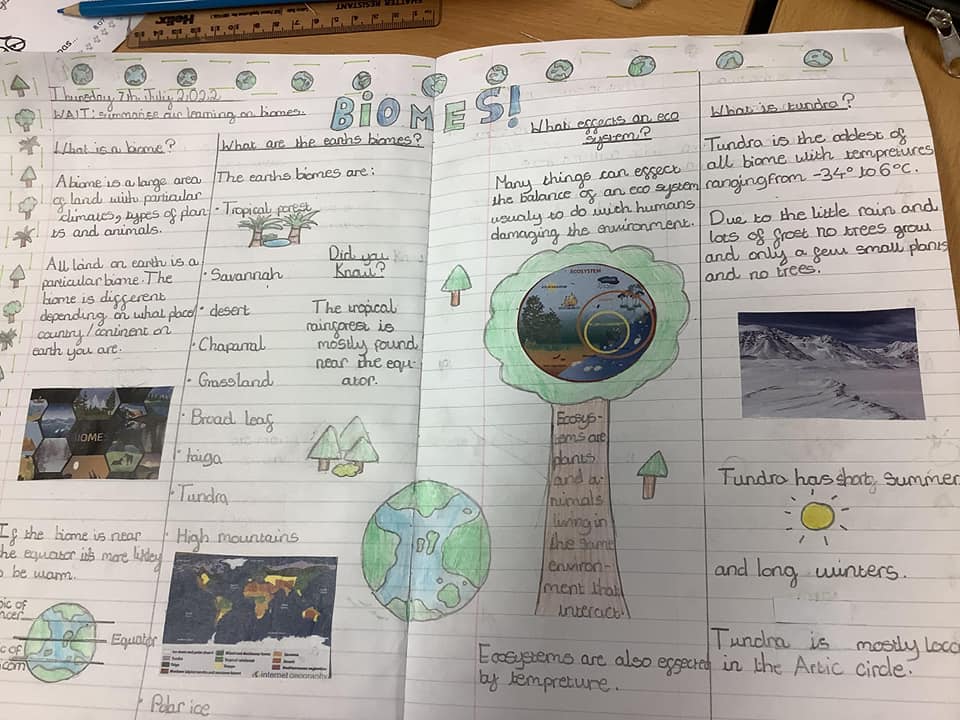 Helix
SHATTER RESISTANT
BiOMES!
Thursday 7th July 2022
WAIT: summarise our learning on biomes.
What is a biome?
A biome is a large area
of land with particular
climates, types of plan
ts and animals.
All land on earth is a
particular biome. The
biome is different
depending on what place/
country/continent on
earth you are.
BIOME
If the biome is near
the equator it's more likley
to be warm.
Equator
What are the earths biomes?
The earths biomes are:
· Tropical forest
· Savannah
· desert
· Chaparral
· Grassland
· Broad leaf
· taiga
· Tundra
· High mountains
internet geography
· Polar ice
Did you
Know?
The tropical
rainforest is
mostly found
near the equ-
ator.
What effects an eco
system?
Many things can effect
the balance of an eco system
usualy to do with humans
damaging the environment.
ECOSYSTEM
Ecosys-
tems are
plants
and a-
nimals
living in
the same
environ-
ment that
interact.
Ecosystems are also effected
by tempreture.
What is tundra?
Tundra is the coldest of
all biome with tempretures
ranging from -34° to 6°C.
Due to the little rain and
lots of frost no trees grow
and only a few small plants
and no trees.
Tundra has short summer
and long winters.
Tundra is mostly loca
in the Artic circle.